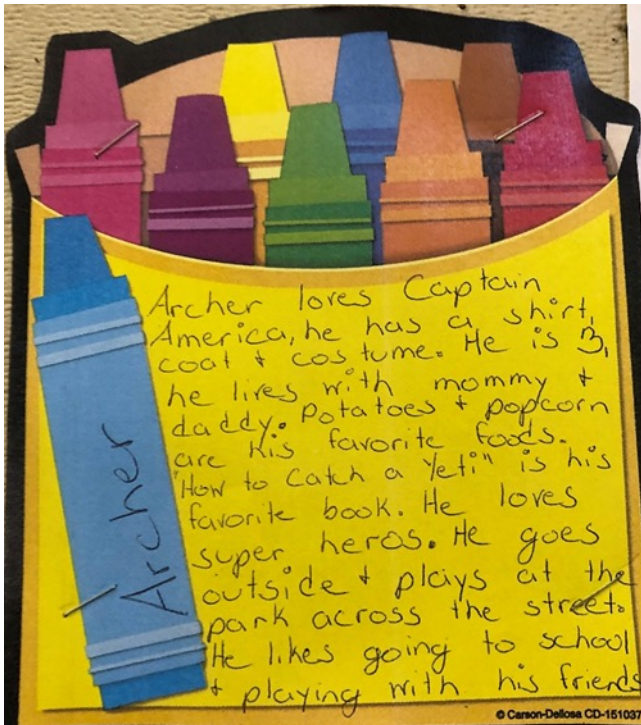 Archer loves Captain
America, he has a shirt,
coat + costume. He is 3,
he lives with mommy +
daddy. Potatoes + popcorn
are his favorite foods.
"How to Catch a Yeti" is his
favorite book. He loves
super heros. He goes
outside + plays at the
park across the street.
He likes going to school
+ playing with his friends
Archer
© Carson-Dellosa CD-151037